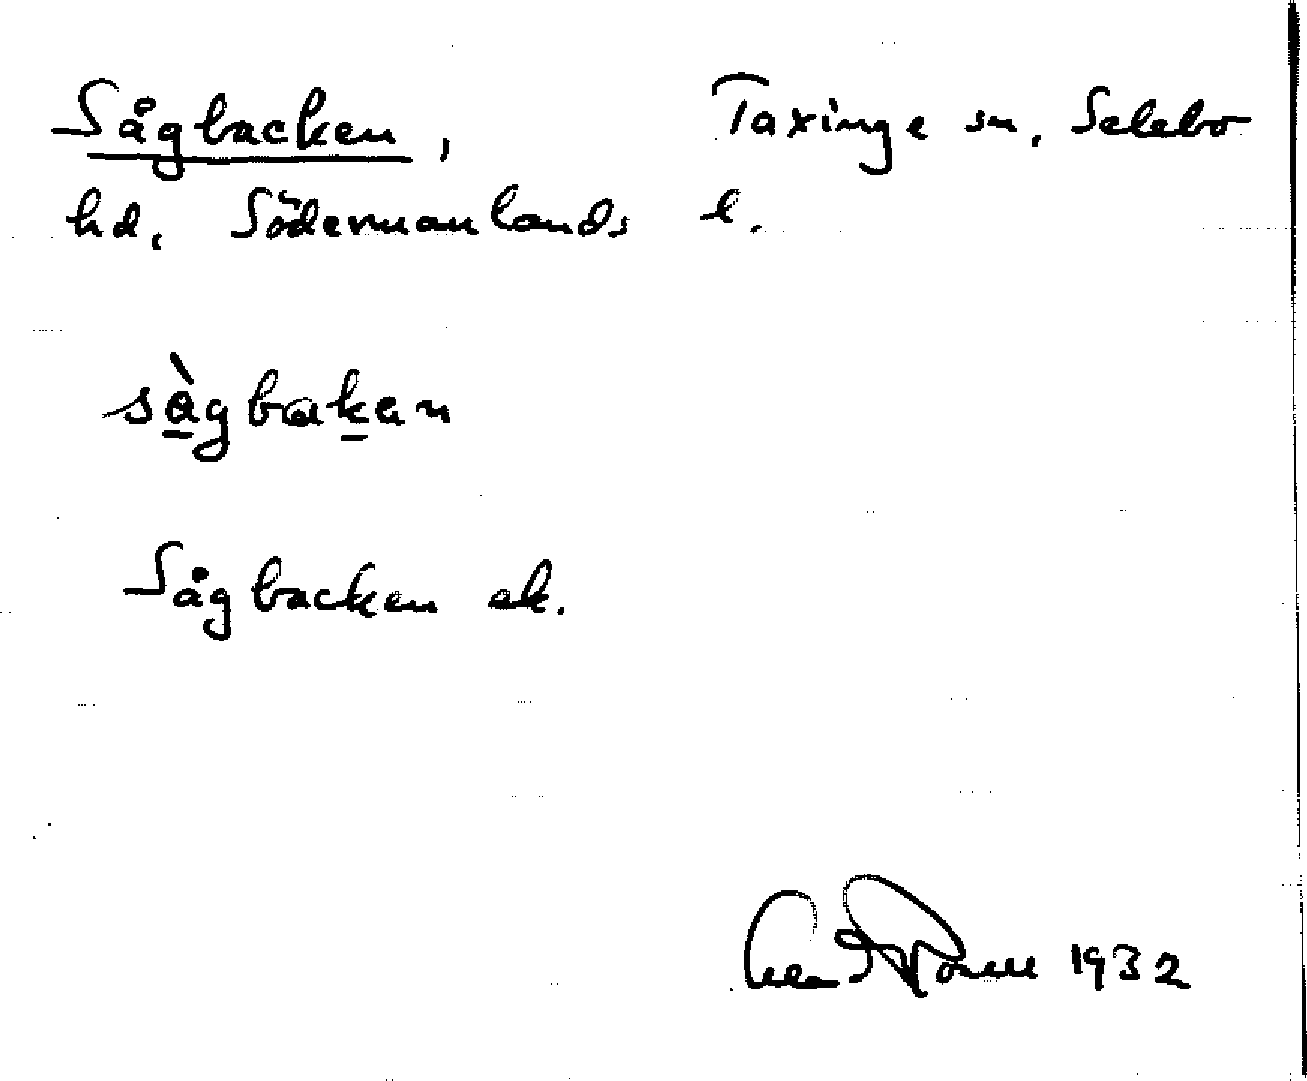 Sågbacken, Taxinge sn, Selebo
hd, Södermanlands l.
sågbakan
Sågbacken ek.
1932